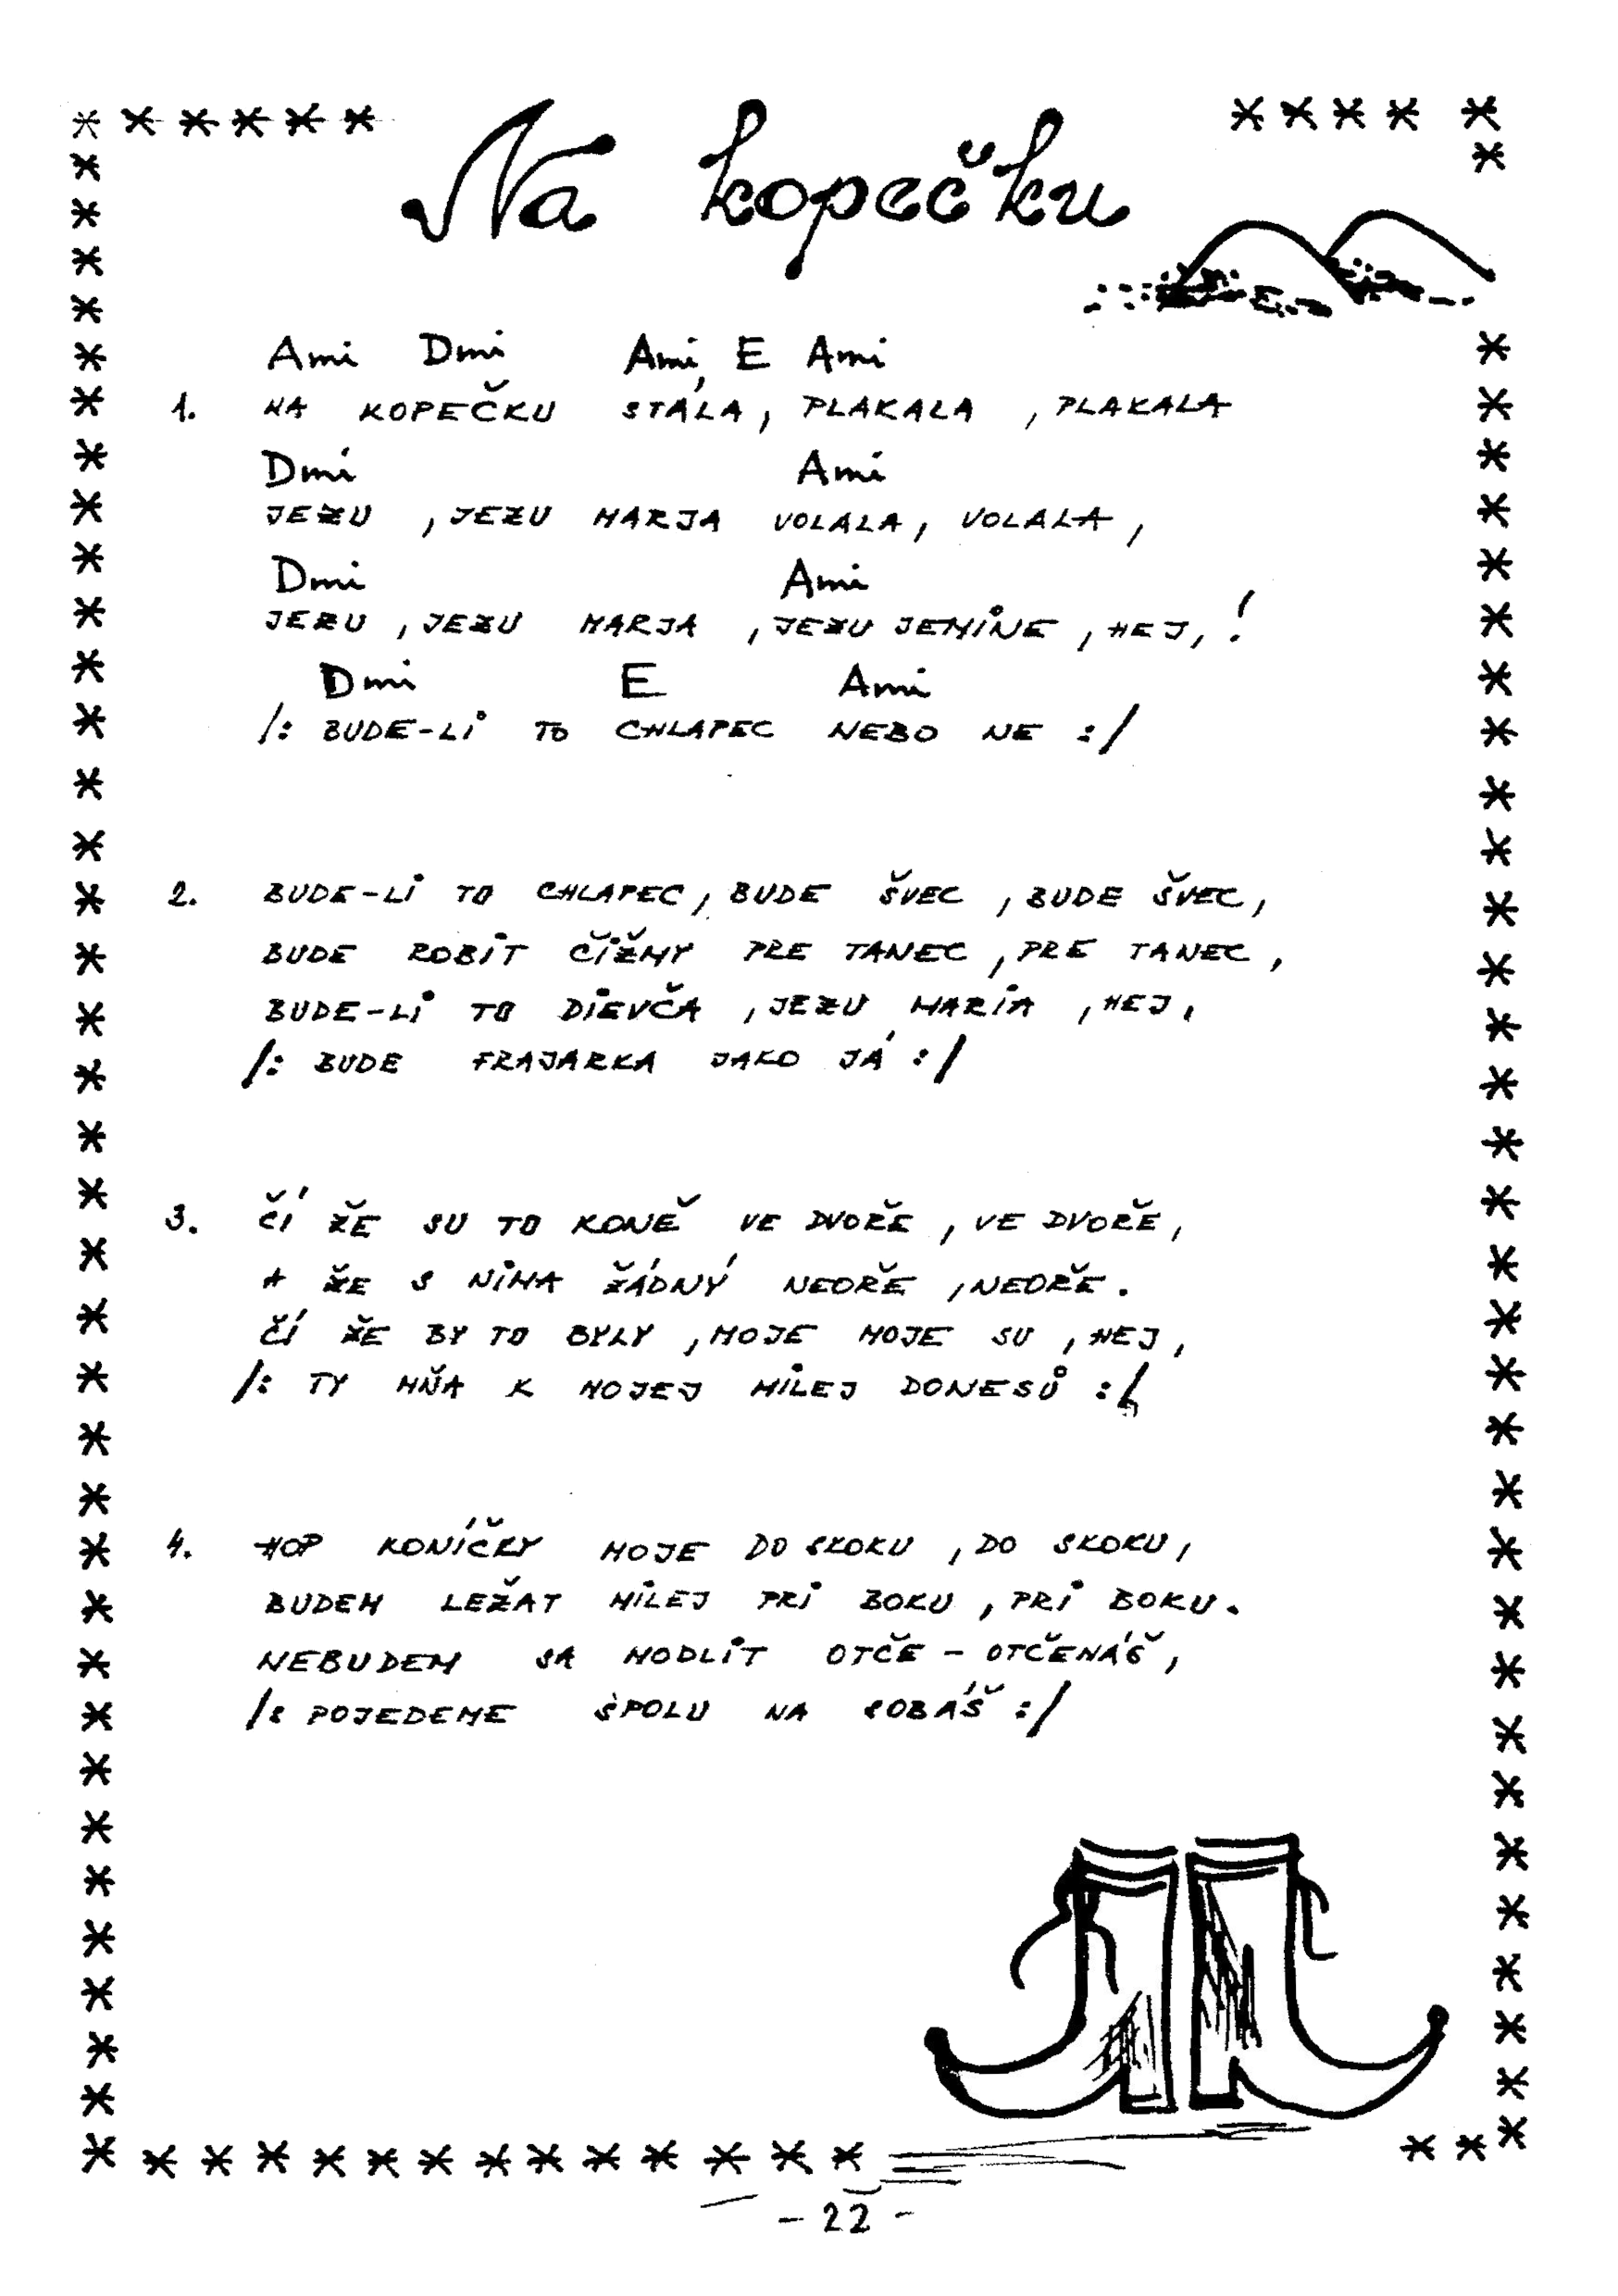 Na kopečku
Ami Dmi Ami E Ami
1. NA KOPEČKU STÁLA, PLAKALA, PLAKALA
Dmi Ami
JEZU, JEZU MARJA VOLALA, VOLALA,
Dmi Ami
JEZU, JEZU MARJA, JEZU JEMINE, HEJ,!
Dmi E Ami
/: BUDE-LI TO CHLAPEC NEBO NE :/
2. BUDE-LI TO CHLAPEC, BUDE ŠVEC, BUDE ŠVEC,
BUDE ROBIT ČIŽMY PRE TANEC, PRE TANEC,
BUDE-LI TO DIEVČA, JEZU MARIA, HEJ,
/: BUDE FRAJARKA JAKO JÁ :/
3. ČÍ ŽE SU TO KONĚ VE DVOŘE, VE DVOŘE,
A ŽE S NIMA ŽÁDNÝ NEOŘE, NEOŘE.
ČÍ ŽE BY TO BYLY, MOJE MOJE SU, HEJ,
/: TY MŇA K MOJEJ MILEJ DONESŮ :/
4. HOP KONÍČKY MOJE DO SKOKU, DO SKOKU,
BUDEM LEŽAT MILEJ PRI BOKU, PRI BOKU.
NEBUDEM SA MODLIT OTČE - OTČENÁŠ,
/: POJEDEME SPOLU NA SOBÁŠ :/
- 22 -